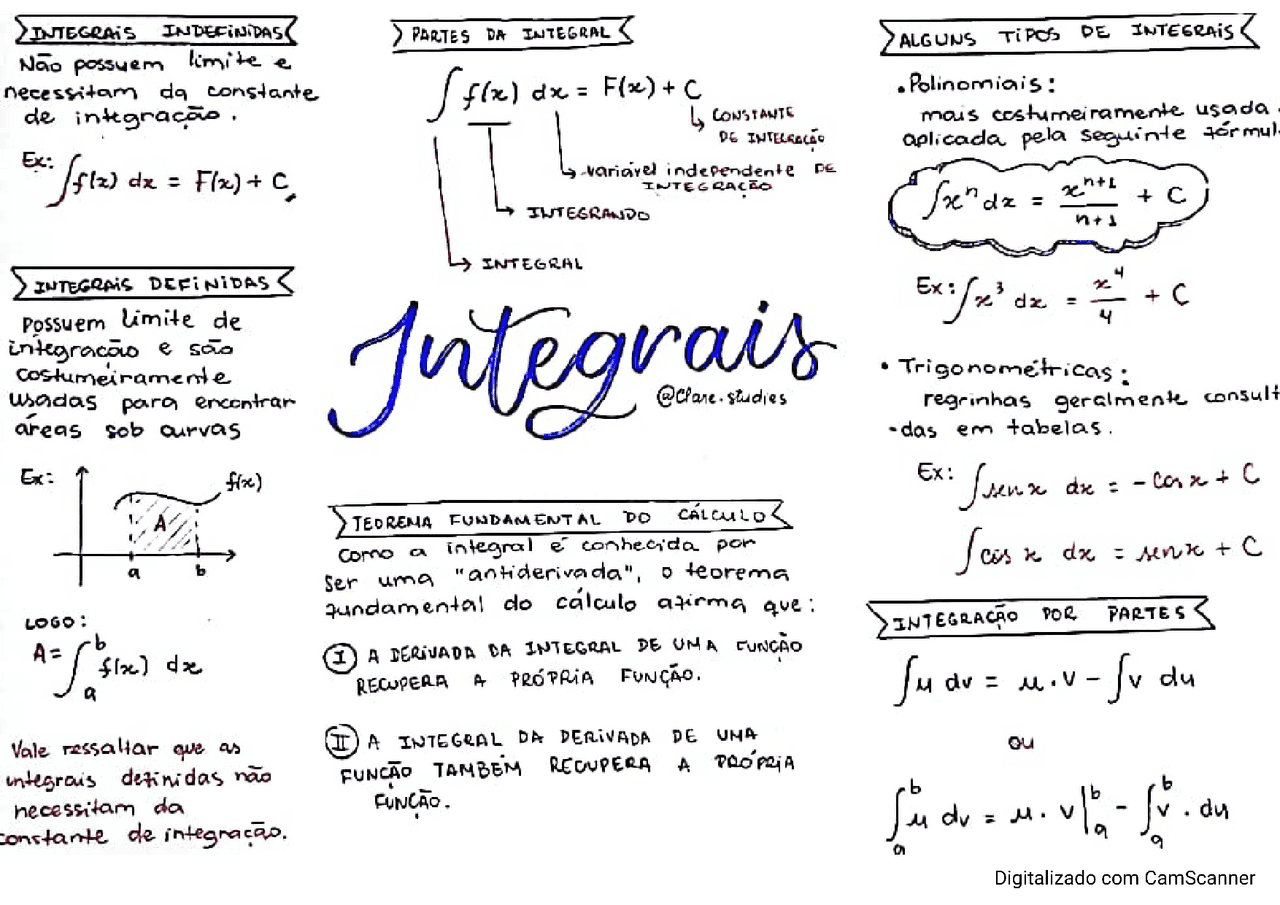 INTEGRAIS INDEFINIDAS
Não possuem limite e
necessitam da constante
de integração.
Ex: ∫f(x) dx = F(x) + C
INTEGRAIS DEFINIDAS
Possuem limite de
integração e são
costumeiramente
usadas para encontrar
áreas sob curvas
Ex:
f(x)
A
a b
LOGO:
A = ∫_a^b f(x) dx
Vale ressaltar que as
integrais definidas não
necessitam da
constante de integração.
PARTES DA INTEGRAL
∫ f(x) dx = F(x) + C
CONSTANTE
DE INTEGRAÇÃO
variável independente DE
INTEGRAÇÃO
INTEGRANDO
INTEGRAL
Integrais
@Clare.studies
TEOREMA FUNDAMENTAL DO CÁLCULO
Como a integral é conhecida por
ser uma "antiderivada", o teorema
fundamental do cálculo afirma que:
I A DERIVADA DA INTEGRAL DE UMA FUNÇÃO
RECUPERA A PRÓPRIA FUNÇÃO.
II A INTEGRAL DA DERIVADA DE UMA
FUNÇÃO TAMBÉM RECUPERA A PRÓPRIA
FUNÇÃO.
ALGUNS TIPOS DE INTEGRAIS
• Polinomiais:
mais costumeiramente usada
aplicada pela seguinte fórmul
∫x^n dx = x^(n+1)/(n+1) + C
Ex: ∫x^3 dx = x^4/4 + C
• Trigonométricas:
regrinhas geralmente consult
-das em tabelas.
Ex: ∫sen x dx = -cos x + C
∫cos x dx = sen x + C
INTEGRAÇÃO POR PARTES
∫u dv = u.v - ∫v du
ou
∫_a^b u dv = u.v|_a^b - ∫_a^b v.du
Digitalizado com CamScanner